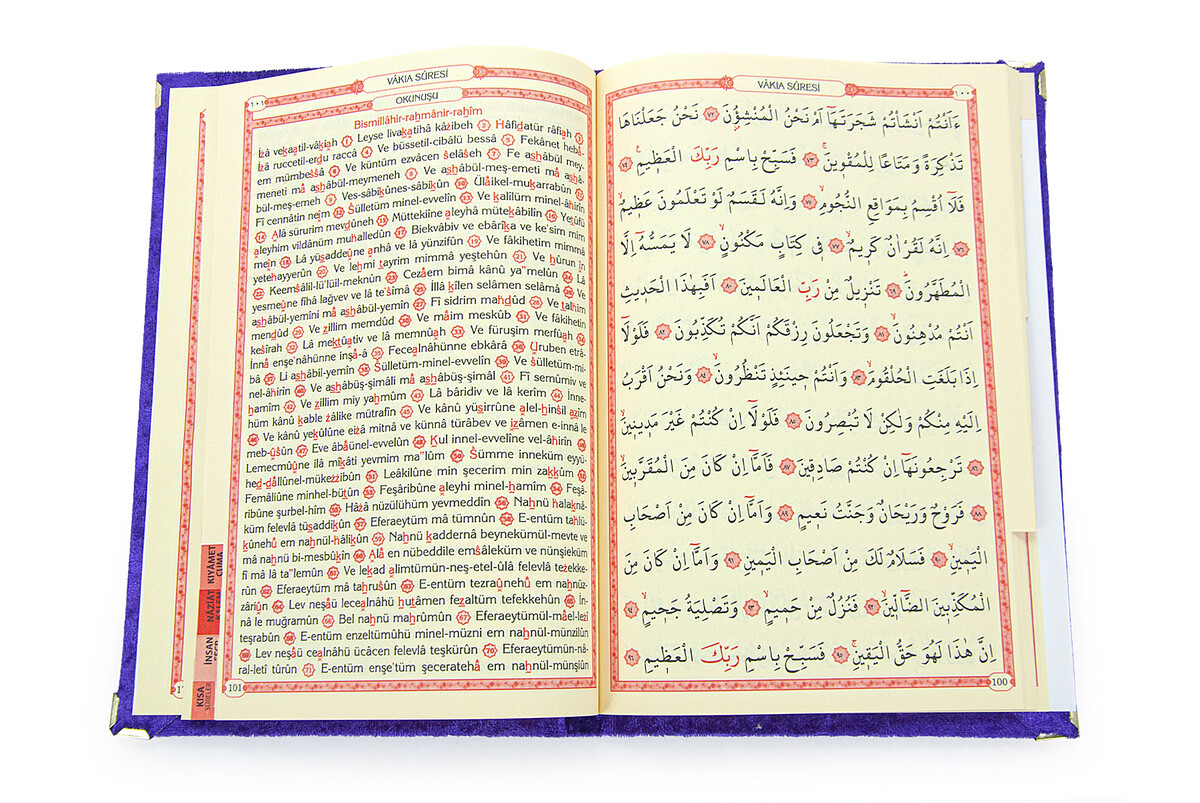 VÂKIA SÛRESİ
١٠٠
ءَاَنْتُمْ اَنْشَأْتُمْ شَجَرَتَهَٓا اَمْ نَحْنُ الْمُنْشِؤُ۫نَ ٧٢ نَحْنُ جَعَلْنَاهَا
تَذْكِرَةً وَمَتَاعًا لِلْمُقْو۪ينَۚ ٧٣ فَسَبِّحْ بِاسْمِ رَبِّكَ الْعَظ۪يمِ۟ ٧٤
فَلَٓا اُقْسِمُ بِمَوَاقِعِ النُّجُومِۙ ٧٥ وَاِنَّهُ لَقَسَمٌ لَوْ تَعْلَمُونَ عَظ۪يمٌۙ
٧٦ اِنَّهُ لَقُرْاٰنٌ كَر۪يمٌۙ ٧٧ ف۪ي كِتَابٍ مَكْنُونٍۙ ٧٨ لَا يَمَسُّهُٓ اِلَّا
الْمُطَهَّرُونَۜ ٧٩ تَنْز۪يلٌ مِنْ رَبِّ الْعَالَم۪ينَ ٨٠ اَفَبِهٰذَا الْحَد۪يثِ
اَنْتُمْ مُدْهِنُونَۙ ٨١ وَتَجْعَلُونَ رِزْقَكُمْ اَنَّكُمْ تُكَذِّبُونَ ٨٢ فَلَوْلَٓا
اِذَا بَلَغَتِ الْحُلْقُومَۙ ٨٣ وَاَنْتُمْ ح۪ينَئِذٍ تَنْظُرُونَۙ ٨٤ وَنَحْنُ اَقْرَبُ
اِلَيْهِ مِنْكُمْ وَلٰكِنْ لَا تُبْصِرُونَ ٨٥ فَلَوْلَٓا اِنْ كُنْتُمْ غَيْرَ مَد۪ين۪ينَۙ
٨٦ تَرْجِعُونَهَٓا اِنْ كُنْتُمْ صَادِق۪ينَ ٨٧ فَاَمَّٓا اِنْ كَانَ مِنَ الْمُقَرَّب۪ينَۙ
٨٨ فَرَوْحٌ وَرَيْحَانٌ وَجَنَّتُ نَع۪يمٍ ٨٩ وَاَمَّٓا اِنْ كَانَ مِنْ اَصْحَابِ
الْيَم۪ينِۙ ٩٠ فَسَلَامٌ لَكَ مِنْ اَصْحَابِ الْيَم۪ينِ ٩١ وَاَمَّٓا اِنْ كَانَ مِنَ
الْمُكَذِّب۪ينَ الضَّٓالّ۪ينَۙ ٩٢ فَنُزُلٌ مِنْ حَم۪يمٍۙ ٩٣ وَتَصْلِيَةُ جَح۪يمٍ ٩٤
اِنَّ هٰذَا لَهُوَ حَقُّ الْيَق۪ينِۚ ٩٥ فَسَبِّحْ بِاسْمِ رَبِّكَ الْعَظ۪يمِ ٩٦
100
VÂKIA SÛRESİ
١٠١
OKUNUŞU
Bismillâhir-rahmânir-rahîm
İzâ vekaatil-vâkıah 1 Leyse livakatihâ kâzibeh 2 Hâfidatür râfiah 3
İzâ ruccetil-erdu raccâ 4 Ve büssetil-cibâlü bessâ 5 Fekânet hebâ-
em mümbessâ 6 Ve küntüm ezvâcen selâseh 7 Fe ashâbül mey-
meneti mâ ashâbül-meymeneh 8 Ve ashâbül-meş-emeti mâ ashâ-
bül-meş-emeh 9 Ves-sâbikûnes-sâbikûn 10 Ülâikel-mukarrabûn 11
Fî cennâtin neîm 12 Sülletüm minel-evvelîn 13 Ve kalîlüm minel-âhirîn
14 Alâ sürurim mevdûneh 15 Müttekiîne aleyhâ mütekâbilîn 16 Yetûfü
aleyhim vildânüm muhalledûn 17 Biekvâbiv ve ebârîka ve ke'sim mim
meîn 18 Lâ yüsaddeûne anhâ ve lâ yünzifûn 19 Ve fâkihetim mimmâ
yetehayyerûn 20 Ve lehmi tayrim mimmâ yeştehûn 21 Ve hûrun în
22 Keemsâlil-lü'lüil-meknûn 23 Cezâem bimâ kânû ya"melûn 24 Lâ
yesmeûne fîhâ lağvev ve lâ te'sîmâ 25 illâ kîlen selâmen selâmâ 26 Ve
ashâbül-yemîni mâ ashâbül-yemîn 27 Fî sidrim mahdûd 28 Ve talhim
mendûd 29 Ve zillim memdûd 30 Ve mâim meskûb 31 Ve fâkihetin
kesîrah 32 Lâ mektûativ ve lâ memnûah 33 Ve füruşim merfûah 34
İnnâ enşe'nâhünne inşâ-â 35 Fecealnâhünne ebkârâ 36 Uruben etrâ-
bâ 37 Li ashâbil-yemîn 38 Sülletüm-minel-evvelîn 39 Ve sülletüm-mi-
nel-âhirîn 40 Ve ashâbüş-şimâli mâ ashâbüş-şimâl 41 Fî semûmiv ve
hamîm 42 Ve zillim miy yahmûm 43 Lâ bâridiv ve lâ kerîm 44 İnne-
hüm kânû kable zâlike mütrafîn 45 Ve kânû yüsırrûne alel-hinsil azîm
46 Ve kânû yekûlûne eizâ mitnâ ve künnâ türâbev ve izâmen e-innâ le
meb-ûsûn 47 Eve âbâünel-evvelûn 48 Kul innel-evvelîne vel-âhirîn 49
Lemecmûûne ilâ mîkâti yevmim ma"lûm 50 Sümme inneküm eyyü-
hed-dâllûnel-mükezzibûn 51 Leâkilûne min şecerim min zakkûm 52
Femâliûne minhel-bütûn 53 Feşâribûne aleyhi minel-hamîm 54 Feşâ-
ribûne şurbel-hîm 55 Hâzâ nüzülühüm yevmeddîn 56 Nahnü halaknâ-
küm felevlâ tüsaddikûn 57 Eferaeytüm mâ tümnûn 58 E-entüm tahlü-
kûnehû em nahnül-hâlikûn 59 Nahnü kaddernâ beynekümül-mevte ve
mâ nahnü bi-mesbûkîn 60 Alâ en nübeddile emsâleküm ve nünşieküm
fî mâ lâ ta"lemûn 61 Ve lekad alimtümün-neş-etel-ûlâ felevlâ tezekke-
rûn 62 Eferaeytüm mâ tahrusûn 63 E-entüm tezraûnehû em nahnüz-
zâriûn 64 Lev neşâü lecealnâhü hutâmen fezaltüm tefekkehûn 65 İn-
nâ le muğramûn 66 Bel nahnü mahrûmûn 67 Eferaeytümül-mâel-lezî
teşrabûn 68 E-entüm enzeltümûhü minel-müzni em nahnül-münzilûn
69 Lev neşâü cealnâhü ücâcen felevlâ teşkürûn 70 Eferaeytümün-nâ-
ral-letî tûrûn 71 E-entüm enşe'tüm şeceratehâ em nahnül-münşiûn
101
KIYÂMET
CUMA
NÂZİÂT
İNSAN
KISA
SÛRELER